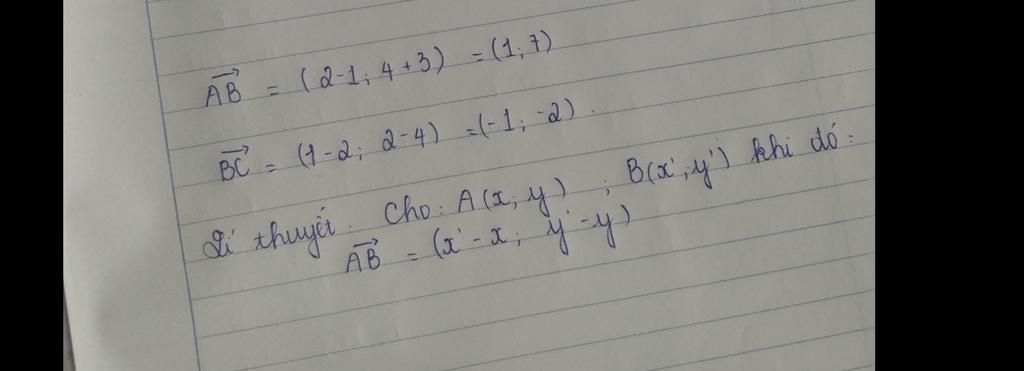 $\overrightarrow{AB}$ = (2-1; 4+3) = (1; 7)
$\overrightarrow{BC}$ = (1-2; 2-4) = (-1; -2).
Lí thuyết. Cho: A(x; y); B(x'; y') khi đó:
$\overrightarrow{AB}$ = (x'-x; y'-y)